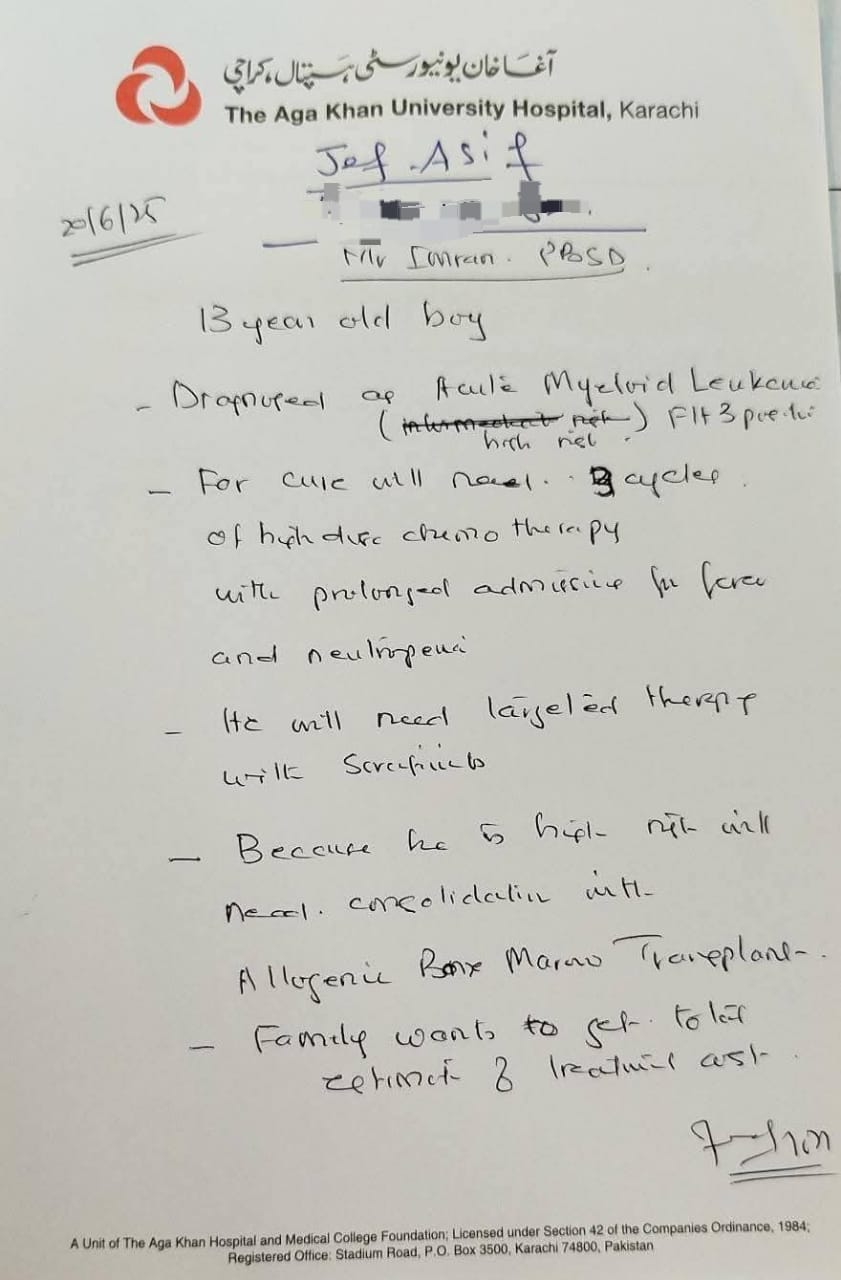 آغا خان یونیورسٹی ہسپتال، کراچی
The Aga Khan University Hospital, Karachi
Asif
20/6/25
Mr Imran. PBSD.
13 year old boy
- Diagnosed as Acute Myeloid Leukemia
(intermediate risk) Flt 3 positive
high risk.
- For cure will need 3 cycles.
of high dose chemo therapy
with prolonged admissions for fever
and neutropenia
- He will need targeted therapy
with Sorafinib
- Because he is high risk will
need. consolidation with
Allogenic Bone Marrow Transplant.
- Family wants to get total
estimate of treatment cost.
A Unit of The Aga Khan Hospital and Medical College Foundation; Licensed under Section 42 of the Companies Ordinance, 1984;
Registered Office: Stadium Road, P.O. Box 3500, Karachi 74800, Pakistan